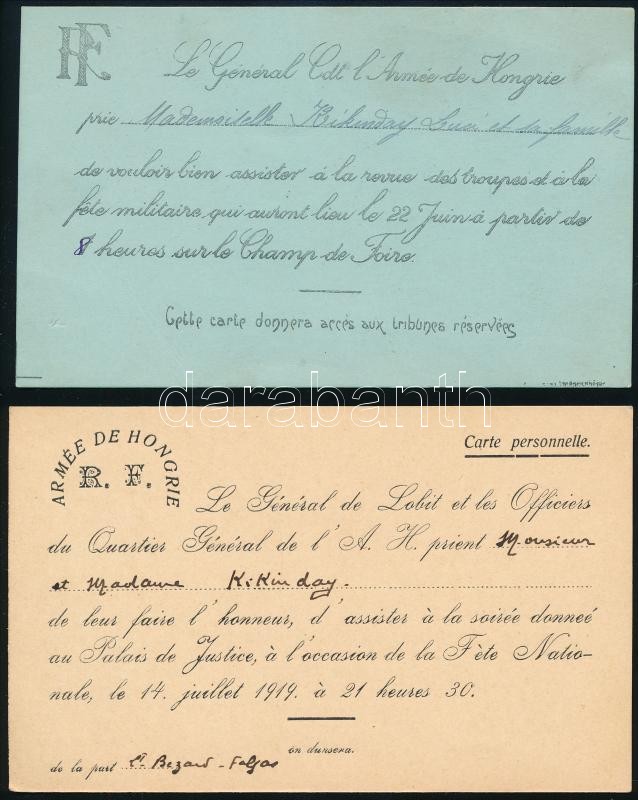 RF
Le Général Cdt l'Armée de Hongrie
prie Mademoiselle Kikinday Luci et sa famille
de vouloir bien assister à la revue des troupes et à la
fête militaire qui auront lieu le 22 Juin à partir de
8 heures sur le Champ de Foire.
Cette carte donnera accès aux tribunes réservées
darabanth
ARMÉE DE HONGRIE
R. F.
Carte personnelle.
Le Général de Lobit et les Officiers
du Quartier Général de l'A. H. prient Monsieur
et Madame Kikinday.
de leur faire l'honneur, d'assister à la soirée donneé
au Palais de Justice, à l'occasion de la Fête Natio-
nale, le 14. juillet 1919. à 21 heures 30.
on dansera.
de la part Bezard-Falgas